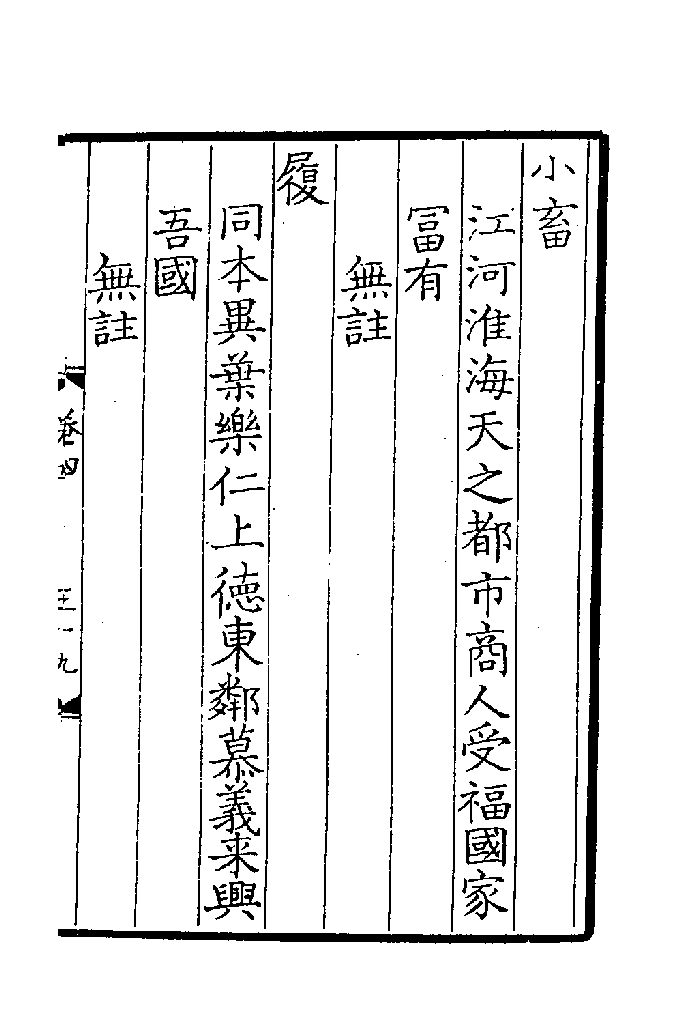 小畜
江河淮海天之都市商人受福國家
冨有
無註
履
同本異葉樂仁上德東鄰慕義来興
吾國
無註
卷四